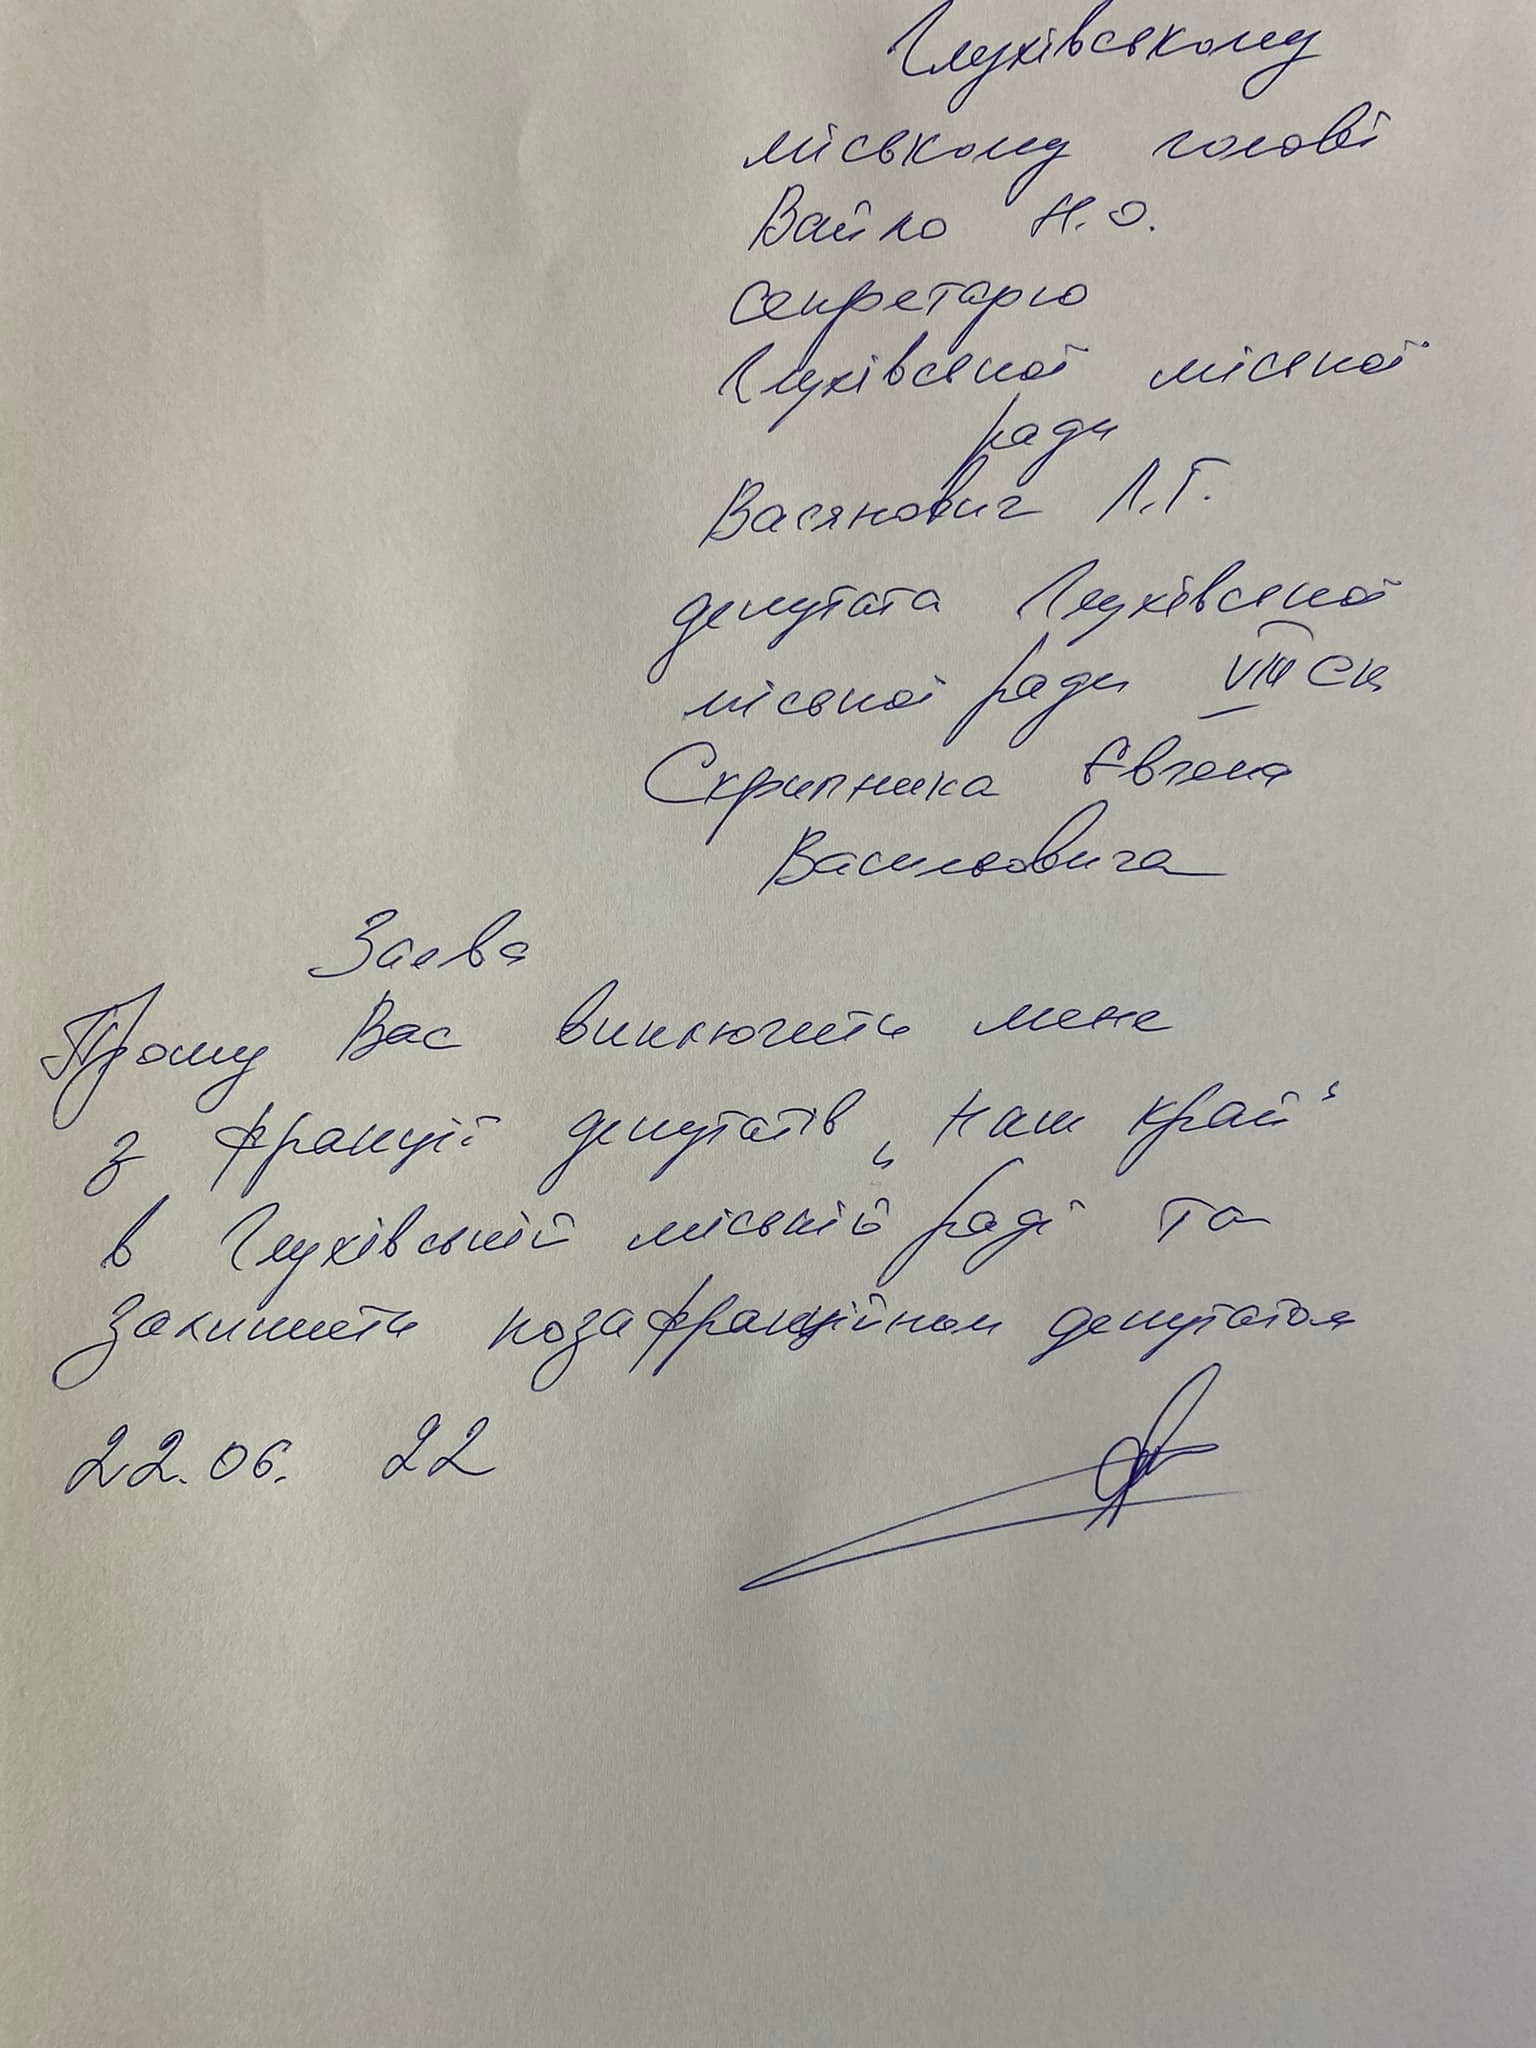 Глухівському
міському голові
Вайло Н.О.
секретарю
Глухівської міської
ради
Васянович Л.Г.
депутата Глухівської
міської ради VIII скл
Скрипника Євгена
Васильовича
Заява
Прошу Вас виключити мене
з фракції депутатів „Наш край“
в Глухівській міській раді та
залишити позафракційном депутатом
22.06. 22